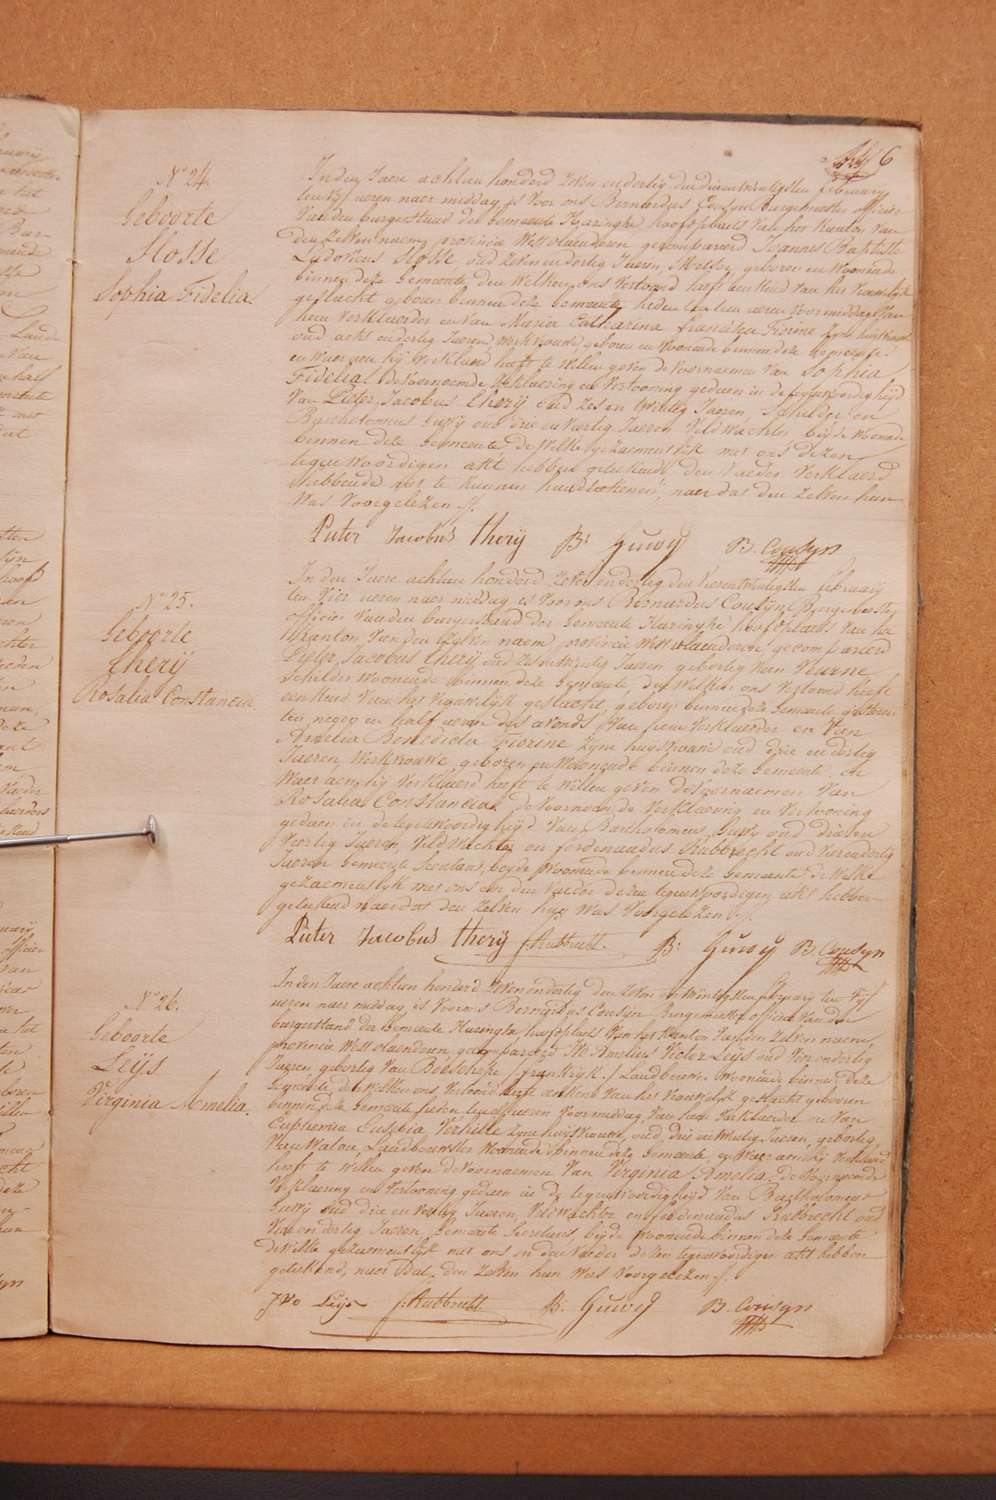 6
N° 24.
Geboorte
Slosse
Sophia Fidelia.
In den Jaere achtien honderd zeven en dertig den drieentwintigsten february
ten vyf ueren naer middag is voor ons Bernardus Cousyn burgemeester officier
van den burgerstand der Gemeente Haringhe hoofdplaets van het kanton van
den zelven naem, provincie Westvlaenderen gecompareerd Joannes Baptiste
Ludovicus Slosse oud zeven en dertig Jaeren, geboren en woonende
binnen deze Gemeente den welken ons vertoond heeft een kind van het vrouwelyk
geslacht geboren binnen deze Gemeente heden ten ueren voormiddag van
hem verklaerder en van Marie Catharina francisca Fiorine zyne huysvrouw
oud acht en dertig Jaeren, werkvrouwe geboren en woonende binnen deze Gemeente
en waer aen hij verklaerd heeft te willen geven de voornaemen van Sophia
Fidelia. De voornoemde verklaering en vertooning gedaen in de tegenwoordigheyd
van Pieter Jacobus Therij oud zes en twintig Jaeren, Schilder en
Bartholomeus Guwij oud drie en veertig Jaeren veldwachter beyde woonende
binnen deze Gemeente de welke gezaementlyk met ons dezen
tegenwoordigen akt hebben geteekend den vaeder verklaerd
hebbende niet te kunnen handteekenen, naer dat den zelven hun
was voorgelezen ./.
Pieter Jacobus Therij B: Guwij B. Cousyn
N° 25.
Geboorte
Therij
Rosalia Constancia.
In den Jaere achtien honderd zeven en dertig den vierentwintigsten february
ten vier ueren naer middag is voor ons Bernardus Cousyn Burgemeester
officier van den burgerstand der Gemeente Haringhe hoofdplaets van het
kanton van den zelven naem, provincie Westvlaenderen, gecompareerd
Pieter Jacobus Therij oud zesentwintig Jaeren geboortig van Veurne,
Schilder woonende binnen deze Gemeente, den welken ons vertoond heeft
een kind van het vrouwelyk geslacht, geboren binnen deze Gemeente gisteren
ten negen en half ueren des avonds, van hem verklaerder en van
Amelia Benedicta Fiorine zyne huysvrouwe oud drie en dertig
Jaeren, Werkvrouwe, geboren en woonende binnen deze Gemeente, en
waer aen hij verklaerd heeft te willen geven de voornaemen van
Rosalia Constancia, de voornoemde verklaering en vertooning
gedaen in de tegenwoordigheyd van Bartholomeus Guwij oud drie en
veertig Jaeren, Veldwachter en ferdinandus Rubbrecht oud vier en dertig
Jaeren Gemeente Secretaris, beyde woonende binnen deze Gemeente de welke
gezaementlyk met ons en den vaeder dezen tegenwoordigen akt hebben
geteekend naerdat den zelven hun was voorgelezen ./.
Pieter Jacobus Therij f. Rubbrecht. B: Guwij B. Cousyn
N° 26.
Geboorte
Leijs
Virginia Amelia.
In den Jaere achtien honderd zeven en dertig den zeven en twintigsten february ten vyf
ueren naer middag, is voor ons Bernardus Cousyn Burgemeester officier van den
burgerstand der Gemeente Haringhe hoofdplaets van het kanton van den zelven naem,
provincie Westvlaenderen, gecompareerd Amelius Victor Leijs oud vier en dertig
Jaeren geboortig van Boeschepe /:frankryk:/ Landbouwer woonende binnen deze
Gemeente den welken ons vertoond heeft een kind van het vrouwelyk geslacht geboren
binnen deze Gemeente ueren voormiddag van hem verklaerder en van
Euphemia Eusebia Verhille zyne huysvrouw, oud drie en twintig Jaeren, geboortig
van Watou, Landbouwster woonende binnen deze Gemeente, en waer aen hij verklaerd
heeft te willen geven de voornaemen van Virginia Amelia. De voornoemde
verklaering en vertooning gedaen in de tegenwoordigheyd van Bartholomeus
Guwij oud drie en veertig Jaeren, Veldwachter en ferdinandus Rubbrecht oud
vier en dertig Jaeren, Gemeente Secretaris, beyde woonende binnen deze Gemeente
de welke gezaementlyk met ons en den vaeder dezen tegenwoordigen akt hebben
geteekend, naer dat den zelven hun was voorgelezen ./.
Leijs f. Rubbrecht B: Guwij B. Cousyn